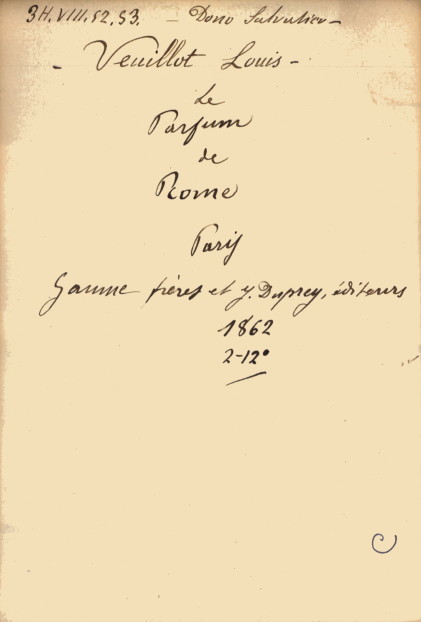 3H.VIII.52.53. — Dono Salvatico —
- Veuillot Louis -
Le
Parfum
de
Rome
Paris
Gaume frères et J. Duprey, éditeurs
1862
2-12°
C